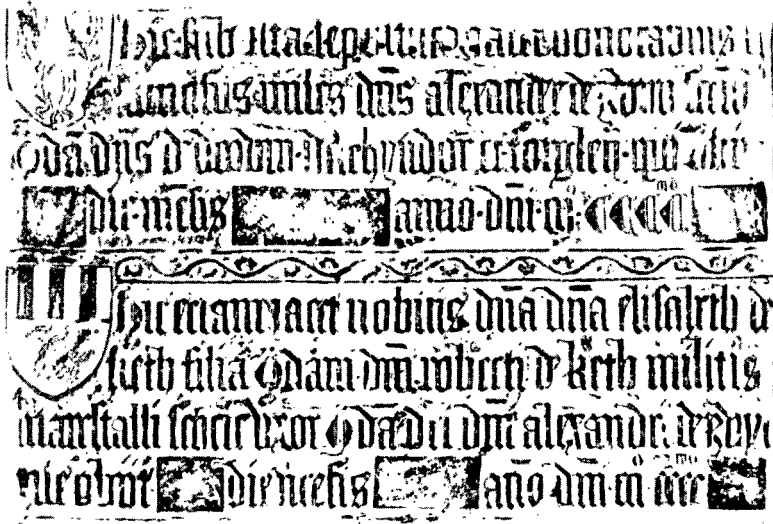 Hic sub ista sepultura jacet honorabilis
famosus miles dñs alexander de
qdā dñs d ac forglen qui obiit
die mensis anno dñi mº ccccmo
hic etiam jacet nobilis dña dña elisabeth de
keth filia qdam dñi roberti d keth militis
marescalli scocie uxor qdā dci dñi alexandri de
que obiit die mēsis año dñi mº ccccmo